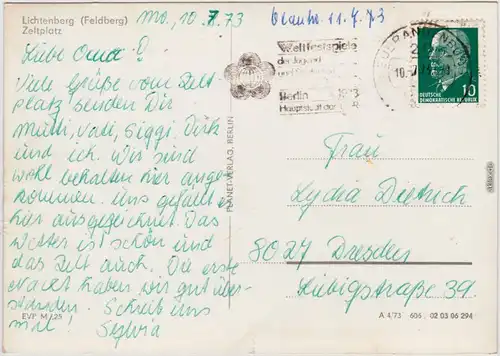 Lichtenberg (Feldberg)
Zeltplatz
Mo, 10.7.73
11.7.73
Liebe Oma!
Viele Grüße vom Zelt-
platz senden Dir
Mutti, Vati, Siggi, Dirk
und ich. Wir sind
wohl behalten hier ange-
kommen. Uns gefällt es
hier ausgezeichnet. Das
Wetter ist schön und
das Zelt auch. Die erste
Nacht haben wir gut über-
standen. Schreib uns
mal! Sylvia
EVP M -,25
PLANET-VERLAG, BERLIN
Weltfestspiele
der Jugend
Berlin 1973
Hauptstadt der DDR
10
DEUTSCHE
DEMOKRATISCHE REPUBLIK
Frau
Lydia Dietrich
8027 Dresden
Liebigstraße 39
A 4/73 606 02 03 06 294